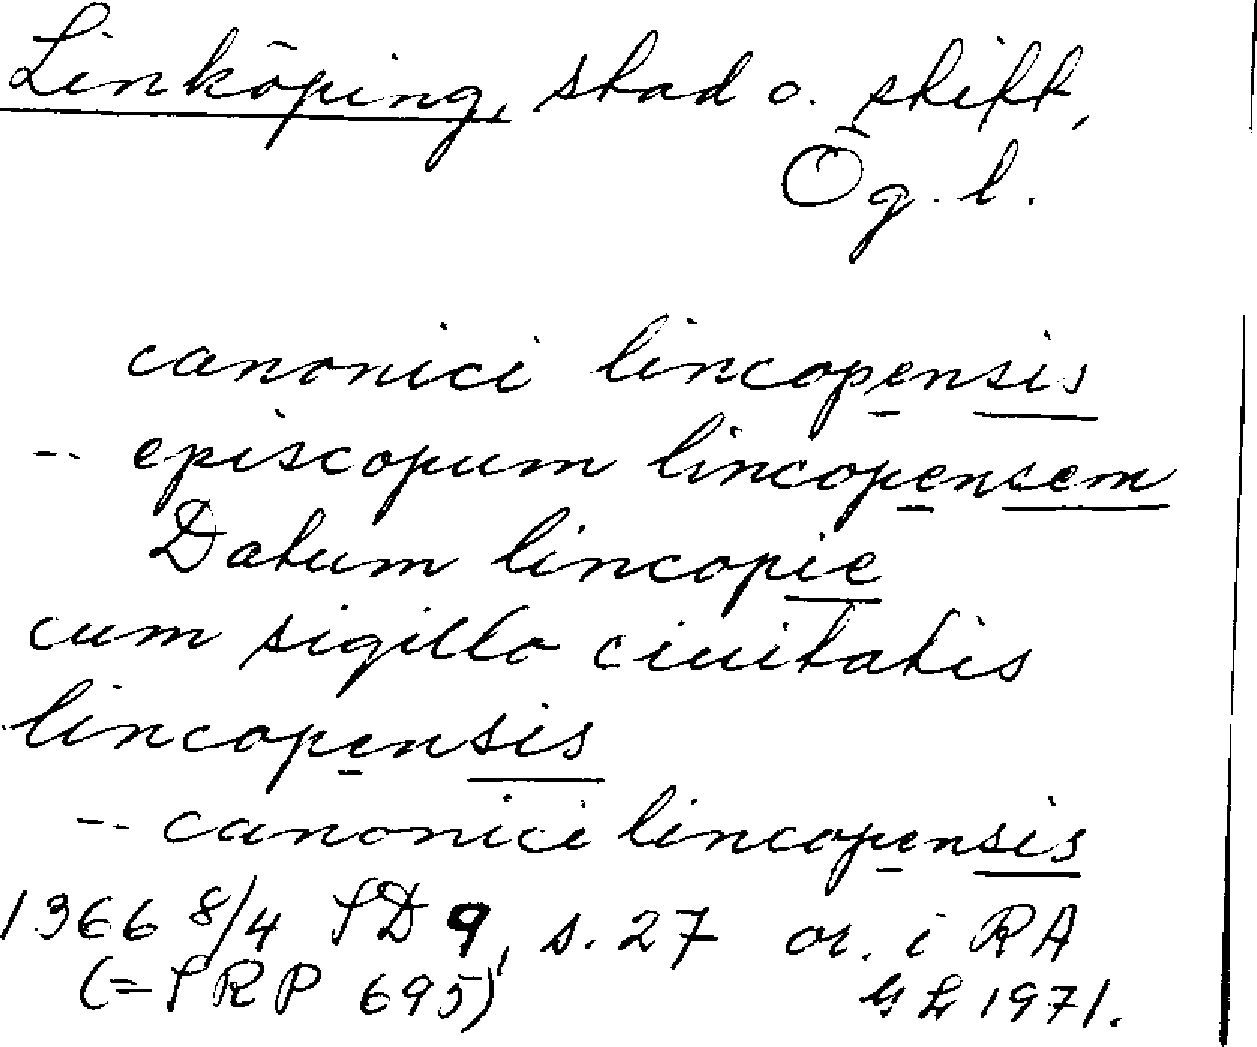 Linköping, stad o. stift,
Ög. l.
canonici lincopensis
-- episcopum lincopensem
Datum lincopie
cum sigillo ciuitatis
lincopensis
-- canonici lincopensis
1366 8/4 SD 9, s. 27 or. i RA
(= SRP 695) GL 1971.